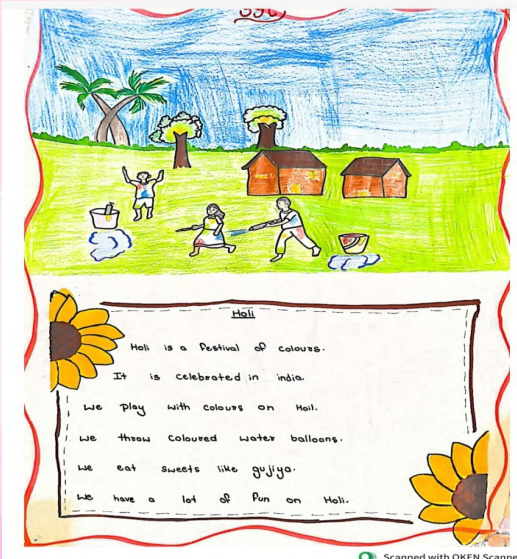 Holi
Holi is a festival of colours.
It is celebrated in india.
We play with colours on Hoil.
We throw coloured water balloons.
We eat sweets like gujiya.
We have a lot of fun on Holi.
Scanned with OKEN Scanne